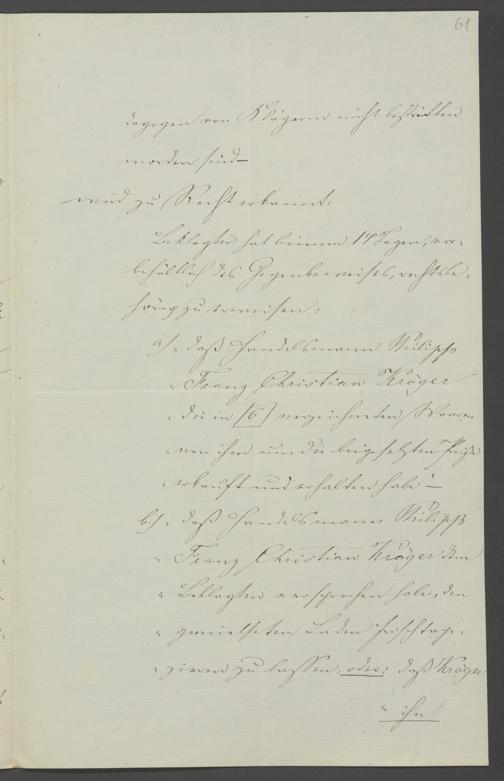 61
dagegen von Klägerin nicht bestritten
worden sind—
wird zu Recht erkannt:
Beklagter hat binnen 14 Tagen, vor-
behältlich des Gegenbeweises, rechtsbe-
hörig zu erweisen:
a) „daß Handelsmann Philipp
„Franz Christian Kröger
„die in [6] verzeichneten Waaren
„von ihm um die beigesetzten Preise
„erkauft und erhalten habe“—
b) „daß Handelsmann Philipp
„Franz Christian Kröger dem
„Beklagten versprochen habe, den
„gemietheten Laden frisch tape-
„zieren zu lassen, oder: daß Kröger
„ihn